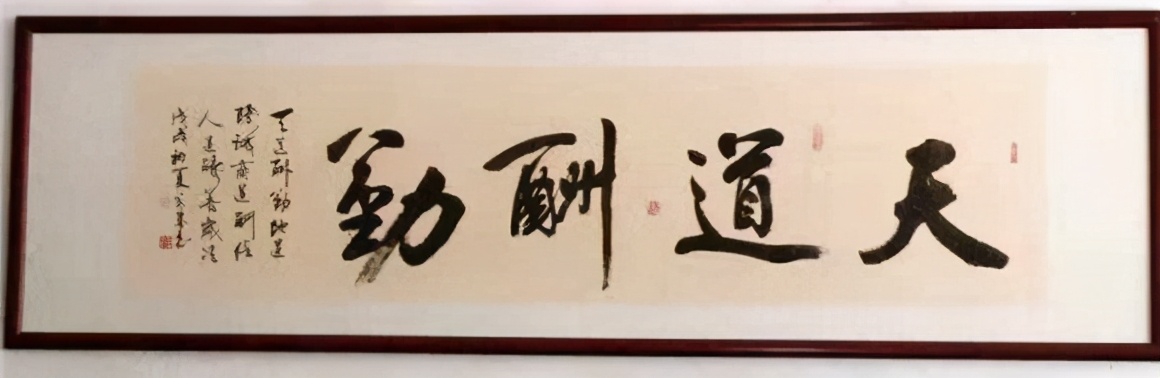 天道酬勤
天道酬勤地道
酬诚商道酬信
人道酬善
戊戌初夏